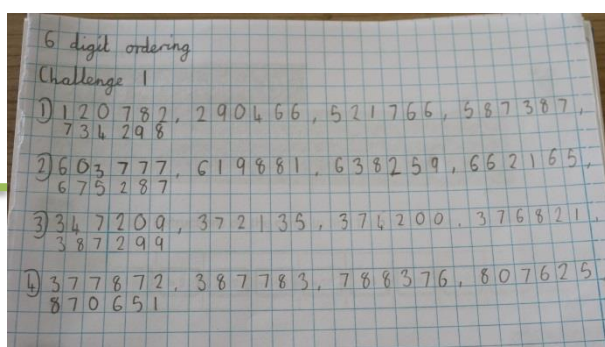 6 digit ordering
Challenge 1
1) 120782, 290466, 521766, 587387,
734298
2) 603777, 619881, 638259, 662165,
675287
3) 347209, 372135, 374200, 376821,
387299
4) 377872, 387783, 788376, 807625
870651